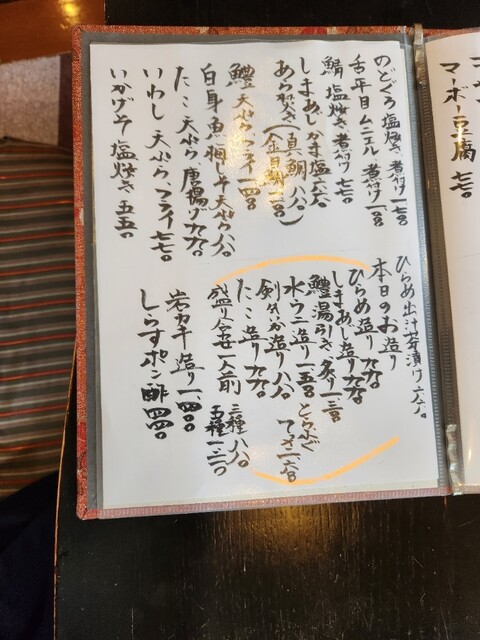 マーボー豆腐 七七〇
のどぐろ 塩焼き 煮付け 一七〇〇
舌平目 ムニエル 煮付け 一一〇〇
鯖 塩焼き 煮付け 七七〇
しまあじかま塩 六六〇
あら焚き(真鯛 八八〇
金目鯛
鱧 天ぷら フライ 一一四〇〇
白身魚梅しそ天ぷら 八八〇
たこ 天ぷら 唐揚げ 九九〇
いわし 天ぷら フライ 七七〇
いかげそ 塩焼き 五五〇
ひらめ出汁茶漬け 六六〇
本日のお造り
ひらめ造り 九九〇
しまあじ造り 九九〇
鱧湯引き 炙り 一三二〇
水ウニ造り 一六五〇
とらふぐ
てっさ
剣先いか造り 八八〇
たこ造り 九九〇
盛り合せ一人前
三種 一八八〇
五種
岩ガキ造り 一四〇〇
しらすポン酢 四四〇